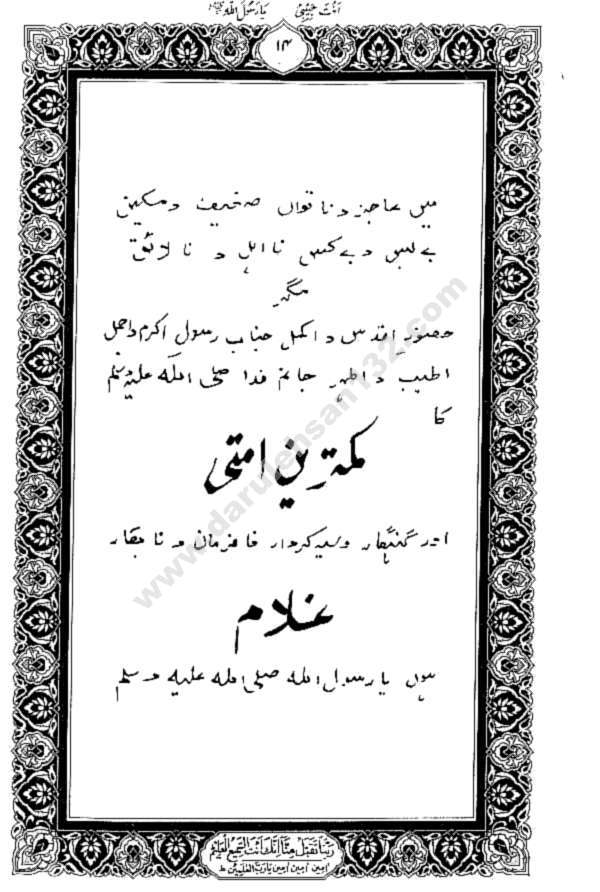 یَا رَسُولَ اللہ اَنْتَ حَبِیْبِیْ
۱۴
میں عاجز و ناتواں ضعیف و مسکین
بے بس و بے کس نا اہل و نا لائق
مگر
حضور اقدس و اکمل جناب رسول اکرم و اجمل
اطیب و اطہر جانم فدا صلی اللہ علیہ وسلم
کا
کمترین امتی
اور گنہگار و سیہ کردار نافرمان و نابکار
غلام
ہوں یا رسول اللہ صلی اللہ علیہ وسلم
www.darulehsan132.com
رَبَّنَا تَقَبَّلْ مِنَّا اِنَّكَ اَنْتَ السَّمِیْعُ الْعَلِیْمُ
اٰمِیْن اٰمِیْن اٰمِیْن یَا رَبَّ الْعٰلَمِیْنَ ط